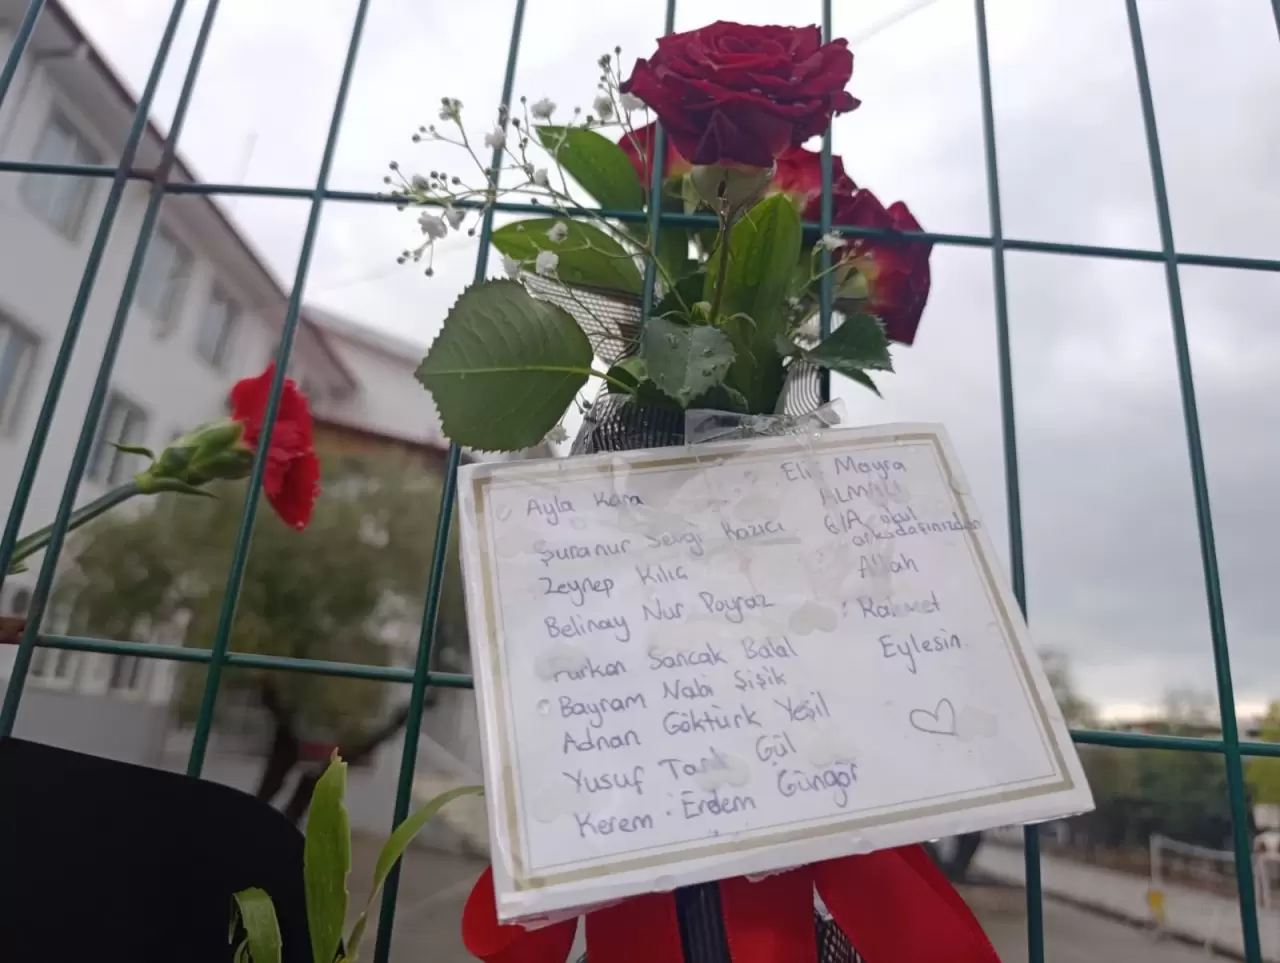 Ayla Kara
Şuranur Sevgi Kazıcı
Zeynep Kılıç
Belinay Nur Poyraz
Furkan Sancak Balal
Bayram Nabi Şişik
Adnan Göktürk Yeşil
Yusuf Tarık Gül
Kerem Erdem Güngör
Mayra
ALMALI
6/A okul
arkadaşınızdan
Allah
Rahmet
Eylesin